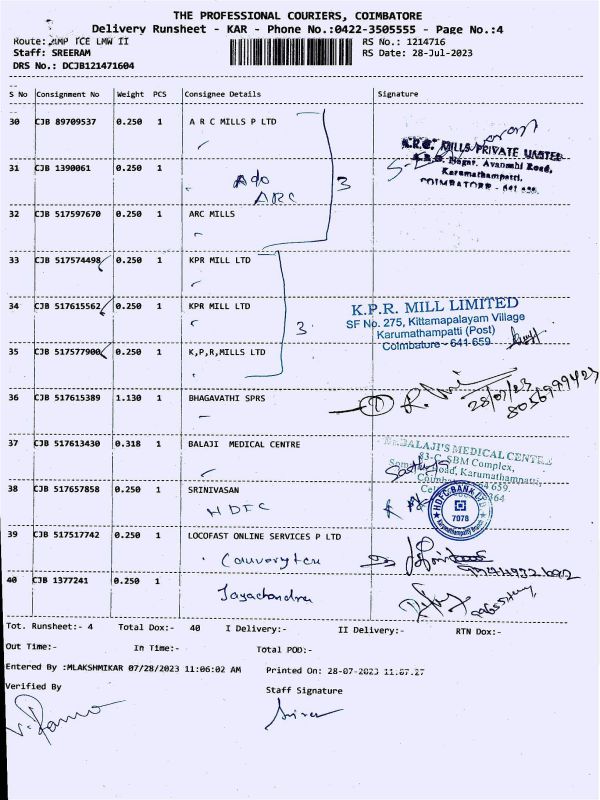 THE PROFESSIONAL COURIERS, COIMBATORE
Delivery Runsheet - KAR - Phone No.:0422-3505555 - Page No.:4
Route: AMP TCE LMW II RS No.: 1214716
Staff: SREERAM RS Date: 28-Jul-2023
DRS No.: DCJB121471604
S No Consignment No Weight PCS Consignee Details Signature
30 CJB 89709537 0.250 1 A R C MILLS P LTD
MILLS PRIVATE LIMITED
Nagar, Avanashi Road,
31 CJB 1390061 0.250 1
Karumathampatti,
COIMBATORE - 641 659.
ARC
3
32 CJB 517597670 0.250 1 ARC MILLS
33 CJB 517574498 0.250 1 KPR MILL LTD
34 CJB 517615562 0.250 1 KPR MILL LTD
K.P.R. MILL LIMITED
SF No. 275, Kittampalayam Village
Karumathampatti (Post)
Coimbatore - 641 659
3
35 CJB 517577900 0.250 1 K,P,R,MILLS LTD
36 CJB 517615389 1.130 1 BHAGAVATHI SPRS
28/07/23
8056999423
37 CJB 517613430 0.318 1 BALAJI MEDICAL CENTRE
BALAJI'S MEDICAL CENTRE
83-C, SBM Complex,
Road, Karumathampatti,
659.
38 CJB 517657858 0.250 1 SRINIVASAN
HDFC
HDFC BANK LTD
7078
39 CJB 517517742 0.250 1 LOCOFAST ONLINE SERVICES P LTD
40 CJB 1377241 0.250 1
Jayachandra
Tot. Runsheet:- 4 Total Dox:- 40 I Delivery:- II Delivery:- RTN Dox:-
Out Time:- In Time:- Total POD:-
Entered By :MLAKSHMIKAR 07/28/2023 11:06:02 AM Printed On: 28-07-2023 11:07:27
Verified By Staff Signature